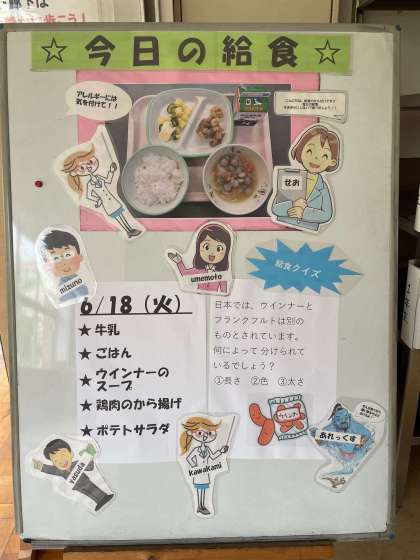 に歩こう！
☆今日の給食☆
アレルギーには
気を付けて！！
せお
mizuno
umemoto
給食クイズ
6/18（火）
★ 牛乳
★ ごはん
★ ウインナーの
スープ
★ 鶏肉のから揚げ
★ ポテトサラダ
日本では、ウインナーと
フランクフルトは別の
ものとされています。
何によって 分けられて
いるでしょう？
①長さ ②色 ③太さ
ウインナー
yasuda
kawakami
あれっくす